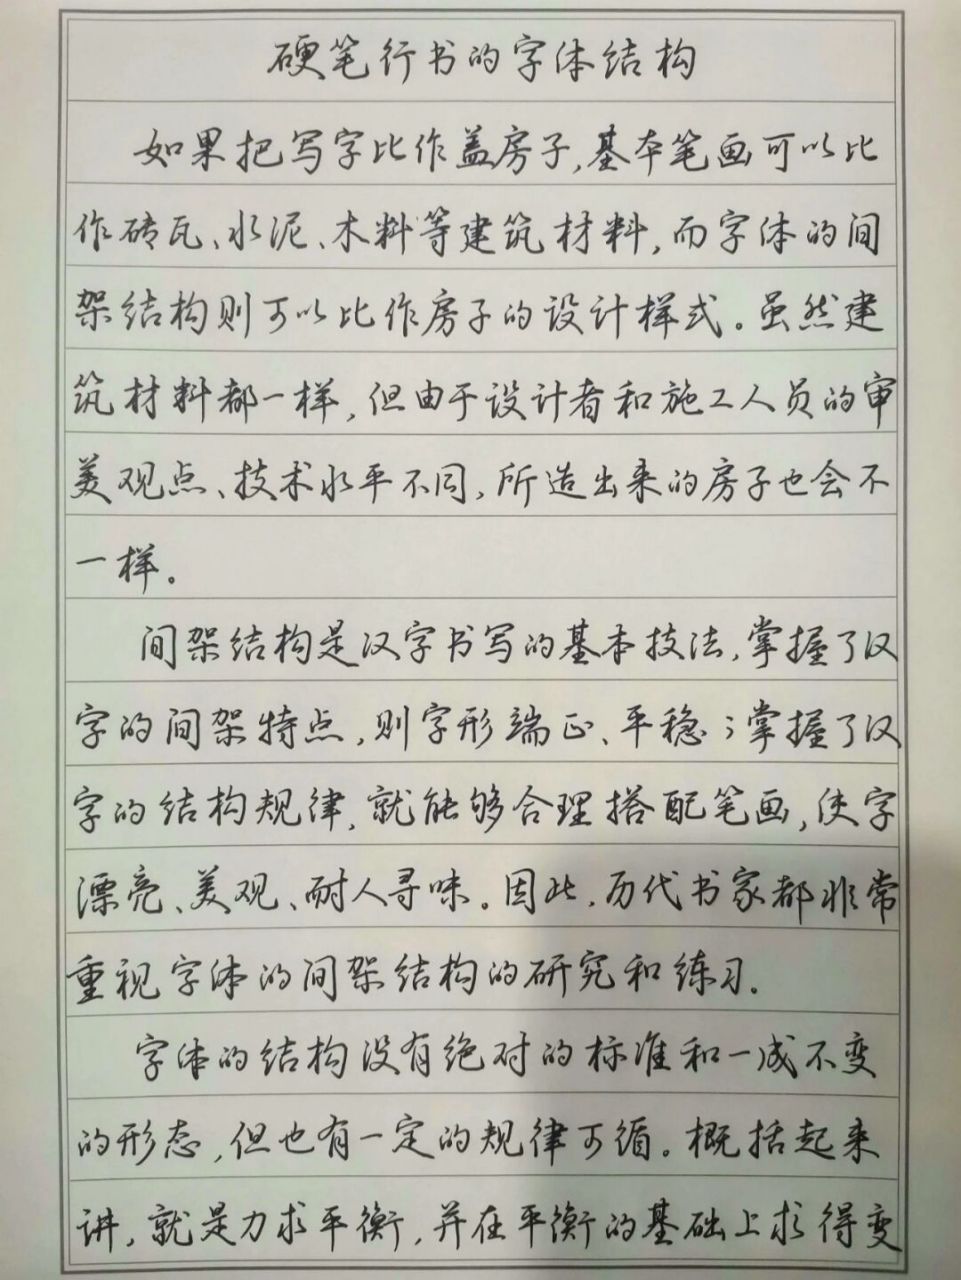 硬笔行书的字体结构
如果把写字比作盖房子,基本笔画可以比
作砖瓦、水泥、木料等建筑材料,而字体的间
架结构则可以比作房子的设计样式。虽然建
筑材料都一样,但由于设计者和施工人员的审
美观点、技术水平不同,所造出来的房子也会不
一样。
间架结构是汉字书写的基本技法,掌握了汉
字的间架特点,则字形端正、平稳;掌握了汉
字的结构规律,就能够合理搭配笔画,使字
漂亮、美观、耐人寻味。因此,历代书家都非常
重视字体的间架结构的研究和练习。
字体的结构没有绝对的标准和一成不变
的形态,但也有一定的规律可循。概括起来
讲,就是力求平衡,并在平衡的基础上求得变